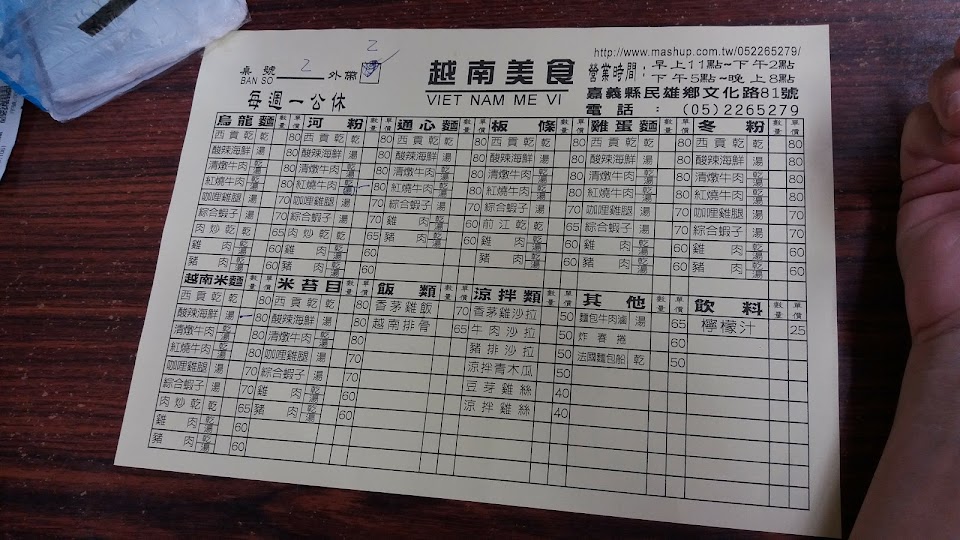 桌號 2 外帶 2
BAN SO
每週一公休
越南美食
VIET NAM ME VI
http://www.mashup.com.tw/052265279/
營業時間:早上11點~下午2點
下午5點~晚上8點
嘉義縣民雄鄉文化路81號
電話 : (05)2265279
烏龍麵 數量 單價
西貢乾 乾 80
酸辣海鮮 湯 80
清燉牛肉 乾湯 80
紅燒牛肉 乾湯 80
咖哩雞腿 湯 70
綜合蝦子 湯 70
肉炒乾 乾 65
雞肉 乾湯 60
豬肉 乾湯 60
河粉 數量 單價
西貢乾 乾 80
酸辣海鮮 湯 80
清燉牛肉 乾湯 80
紅燒牛肉 乾湯 80
綜合蝦子 湯 70
肉炒乾 乾 65
雞肉 乾湯 60
豬肉 乾湯 60
通心麵 數量 單價
西貢乾 乾 80
酸辣海鮮 湯 80
清燉牛肉 乾湯 80
紅燒牛肉 乾湯 80
雞肉 乾湯
豬肉 乾湯 60
板條 數量 單價
西貢乾 乾 80
酸辣海鮮 湯 80
清燉牛肉 乾湯 80
紅燒牛肉 乾湯 80
綜合蝦子 湯 70
前江乾 乾 65
雞肉 乾湯 60
豬肉 乾湯 60
雞蛋麵 數量 單價
西貢乾 乾 80
酸辣海鮮 湯 80
清燉牛肉 乾湯 80
紅燒牛肉 乾湯 80
咖哩雞腿 湯 70
綜合蝦子 湯 70
雞肉 乾湯 60
豬肉 乾湯 60
冬粉 數量 單價
西貢乾 乾 80
酸辣海鮮 湯 80
清燉牛肉 乾湯 80
紅燒牛肉 乾湯 80
咖哩雞腿 湯 70
綜合蝦子 湯 70
雞肉 乾湯 60
豬肉 乾湯 60
越南米麵 數量 單價
西貢乾 乾 80
酸辣海鮮 湯 80
清燉牛肉 乾湯 80
紅燒牛肉 乾湯 80
咖哩雞腿 湯 70
綜合蝦子 湯 70
肉炒乾 乾 65
雞肉 乾湯 60
豬肉 乾湯 60
米苔目 數量 單價
西貢乾 乾 80
酸辣海鮮 湯 80
清燉牛肉 乾湯 80
咖哩雞腿 湯 70
綜合蝦子 湯 70
雞肉 乾湯 60
豬肉 乾湯 60
飯類 數量 單價
香茅雞飯 70
越南排骨 65
涼拌類 數量 單價
香茅雞沙拉 50
牛肉沙拉 50
豬排沙拉 50
涼拌青木瓜 50
豆芽雞絲 40
涼拌雞絲 40
其他 數量 單價
麵包牛肉滷 湯 65
炸春捲 60
法國麵包船 乾 50
飲料 數量 單價
檸檬汁 25